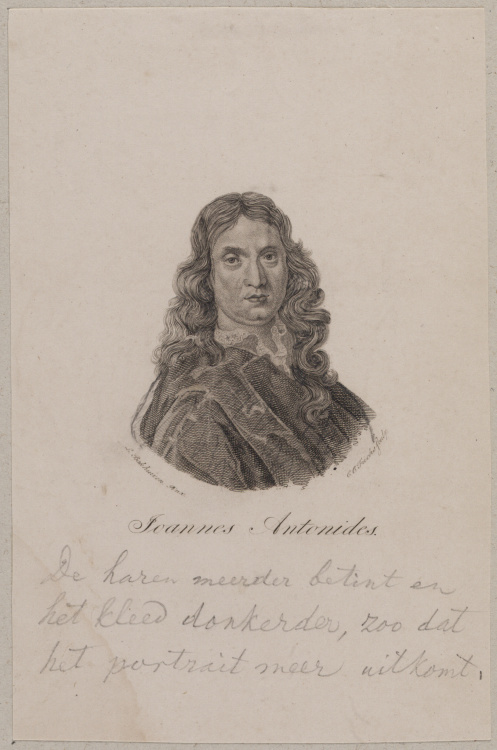 Ioannes Antonides.
De haren meerder betint en
het kleed donkerder, zoo dat
het portrait meer uitkomt.